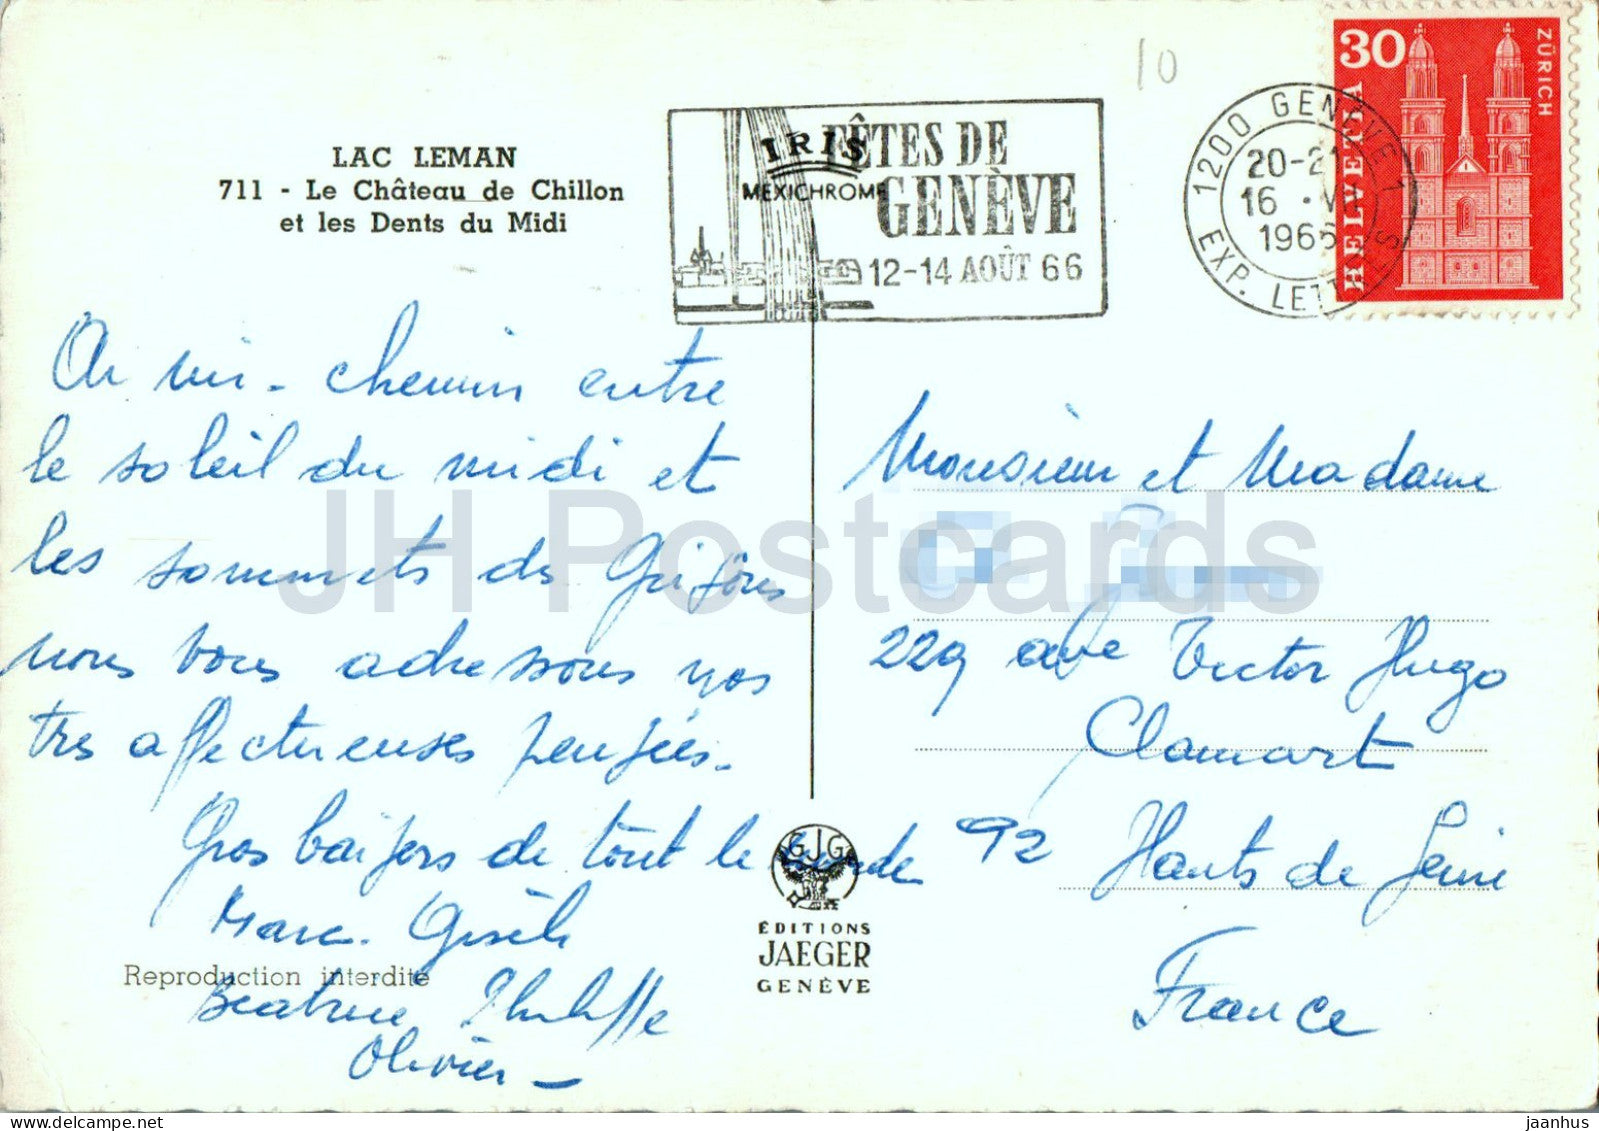 10
30
HELVETIA
ZÜRICH
1200 GENÈVE 1
EXP. LETTRES
20-21
16
1966
IRIS
MEXICHROME
FÊTES DE
GENÈVE
12-14 AOÛT 66
LAC LEMAN
711 - Le Château de Chillon
et les Dents du Midi
A mi-chemin entre
le soleil du midi et
les sommets des Grisons
nous vous adressons nos
très affectueuses pensées.
Gros baisers de tout le monde
Marc. Gisèle
Béatrice Philippe
Olivier
Monsieur et Madame
229 ave Victor Hugo
Clamart
92 Hauts de Seine
France
GJG
ÉDITIONS
JAEGER
GENÈVE
Reproduction interdite
JH Postcards
jaanhus @ delcampe.net